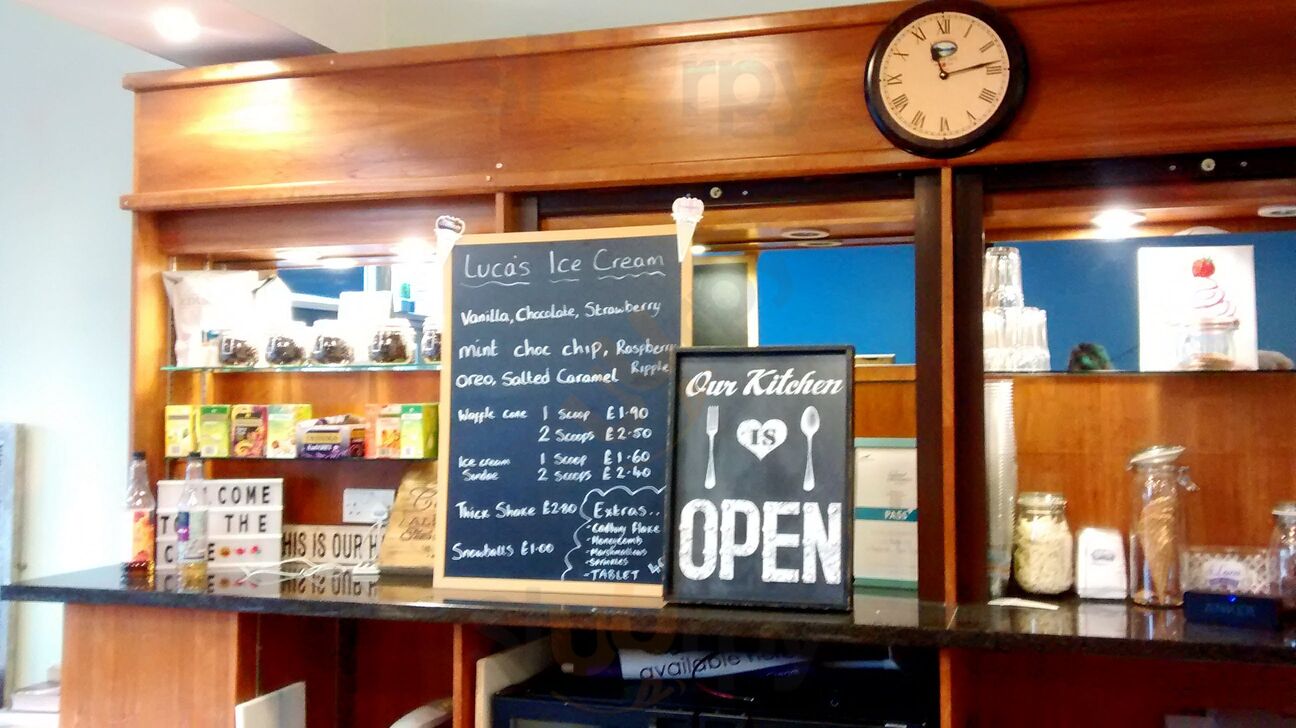 Luca's Ice Cream
Vanilla, Chocolate, Strawberry
mint choc chip, Raspberry
Ripple
Oreo, Salted Caramel
Waffle cone 1 Scoop £1.90
2 Scoops £2.50
Ice cream 1 Scoop £1.60
Sundae 2 scoops £2.40
Thick Shake £2.80
Snowballs £1.00
Extras..
- Cadbury Flake
- Honeycomb
- Marshmallows
- Sprinkles
- TABLET
Our Kitchen
IS
OPEN
COME
THE
THIS IS OUR
PASS
ANKER
available
XII
I
II
III
IX
X
XI